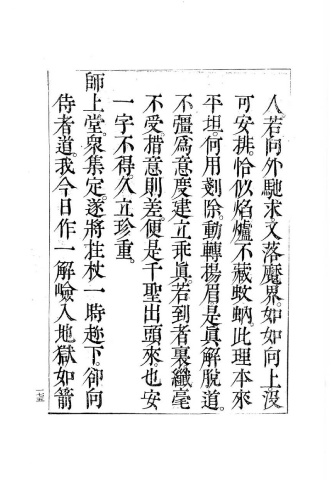 人若向外馳求又落魔界如如向上沒
可安排恰似焰爐不藏蚊蚋此理本來
平坦何用剗除動轉揚眉是眞解脫道
不彊爲意度建立乖眞若到者裏纖毫
不受措意則差便是千聖出頭來也安
一字不得久立珍重
師上堂衆集定遂將拄杖一時趂下卻向
侍者道我今日作一解嶮入地獄如箭